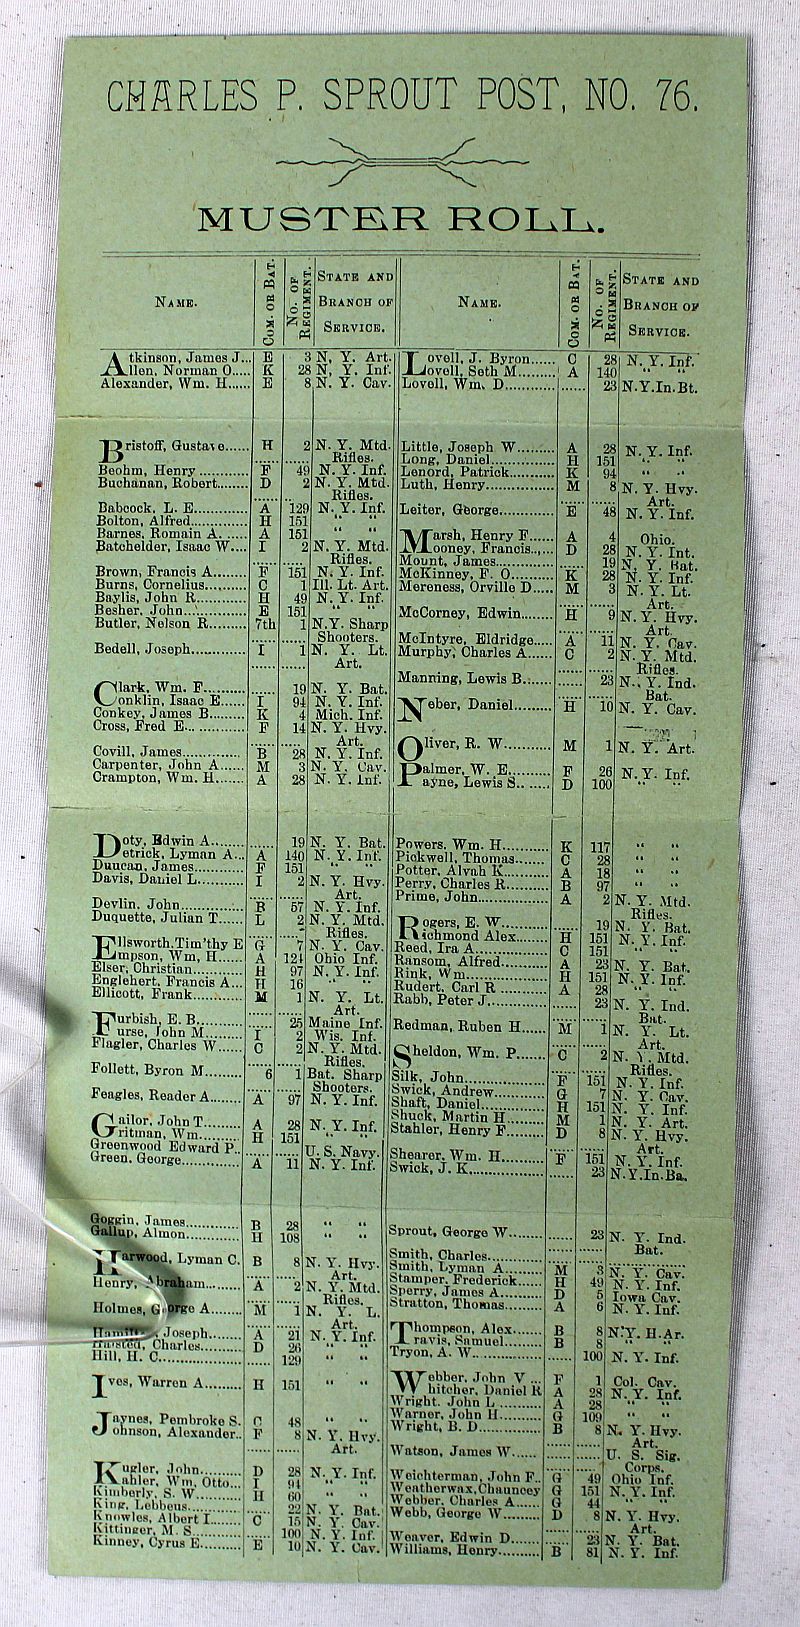 CHARLES P. SPROUT POST, NO. 76.
MUSTER ROLL.
NAME. COM. OR BAT. NO. OF REGIMENT. STATE AND BRANCH OF SERVICE.
Atkinson, James J... E 3 N. Y. Art.
Allen, Norman O..... K 28 N. Y. Inf.
Alexander, Wm. H...... E 8 N. Y. Cav.
Bristoff, Gustave...... H 2 N. Y. Mtd.
Rifles.
Beohm, Henry ............ F 49 N. Y. Inf.
Buchanan, Robert........ D 2 N. Y. Mtd.
Rifles.
Babcock, L. E............ A 129 N. Y. Inf.
Bolton, Alfred............. H 151 " "
Barnes, Romain A...... A 151 " "
Batchelder, Isaac W.... I 2 N. Y. Mtd.
Rifles.
Brown, Francis A........ F 151 N. Y. Inf.
Burns, Cornelius......... C 1 Ill. Lt. Art.
Baylis, John R............ H 49 N. Y. Inf.
Besher, John............... E 151 " "
Butler, Nelson R......... 7th 1 N.Y. Sharp
Shooters.
Bedell, Joseph............ I 1 N. Y. Lt.
Art.
Clark, Wm. F.......... 19 N. Y. Bat.
Conklin, Isaac E...... I 94 N. Y. Inf.
Conkey, James B......... K 4 Mich. Inf.
Cross, Fred E.............. F 14 N. Y. Hvy.
Art.
Covill, James.............. B 28 N. Y. Inf.
Carpenter, John A...... M 3 N. Y. Cav.
Crampton, Wm. H....... A 28 N. Y. Inf.
Doty, Edwin A........ 19 N. Y. Bat.
Detrick, Lyman A... A 140 N. Y. Inf.
Duncan, James........... F 151 " "
Davis, Daniel L........... I 2 N. Y. Hvy.
Art.
Devlin, John............... B 57 N. Y. Inf.
Duquette, Julian T...... L 2 N. Y. Mtd.
Rifles.
Ellsworth, Tim'thy E G 7 N. Y. Cav.
Empson, Wm, H...... A 124 Ohio Inf.
Elser, Christian........... H 97 N. Y. Inf.
Englehert, Francis A... H 16 " "
Ellicott, Frank............ M 1 N. Y. Lt.
Art.
Furbish, E. B........... 25 Maine Inf.
Furse, John M......... I 2 Wis. Inf.
Flagler, Charles W...... C 2 N. Y. Mtd.
Rifles.
Follett, Byron M......... 6 1 Bat. Sharp
Shooters.
Feagles, Reader A........ A 97 N. Y. Inf.
Gailor, John T......... A 28 N. Y. Inf.
Gritman, Wm.......... H 151 " "
Greenwood Edward P.. U. S. Navy.
Green, George............. A 11 N. Y. Inf.
Goggin, James............. B 28 " "
Gallup, Almon............ H 108 " "
Harwood, Lyman C. B 8 N. Y. Hvy.
Art.
Henry, Abraham......... A 2 N. Y. Mtd.
Rifles.
Holmes, George A........ M 1 N. Y. L.
Art.
Joseph......... A 21 N. Y. Inf.
Halsted, Charles.......... D 26 " "
Hill, H. C................... 129 " "
Ives, Warren A......... H 151 " "
Jaynes, Pembroke S. C 48 " "
Johnson, Alexander.. F 8 N. Y. Hvy.
Art.
Kugler, John........... D 28 N. Y. Inf.
Kahler, Wm. Otto... I 94 " "
Kimberly, S. W........... H 60 " "
King, Lebbeus............ 22 N. Y. Bat.
Knowles, Albert I........ C 15 N. Y. Cav.
Kittinger, M. S............ 100 N. Y. Inf.
Kinney, Cyrus E......... E 10 N. Y. Cav.
NAME. COM. OR BAT. NO. OF REGIMENT. STATE AND BRANCH OF SERVICE.
Lovell, J. Byron...... C 28 N. Y. Inf.
Lovell, Seth M......... A 140 " "
Lovell, Wm. D............ 23 N.Y.In.Bt.
Little, Joseph W.......... A 28 N. Y. Inf.
Long, Daniel............... H 151 " "
Lenord, Patrick.......... K 94 " "
Luth, Henry............... M 8 N. Y. Hvy.
Art.
Leiter, George............. E 48 N. Y. Inf.
Marsh, Henry F...... A 4 Ohio.
Mooney, Francis...... D 28 N. Y. Int.
Mount, James............. 19 N. Y. Bat.
McKinney, F. O.......... K 28 N. Y. Inf.
Mereness, Orville D..... M 3 N. Y. Lt.
Art.
McCorney, Edwin........ H 9 N. Y. Hvy.
Art.
McIntyre, Eldridge..... A 11 N. Y. Cav.
Murphy, Charles A...... C 2 N. Y. Mtd.
Rifles.
Manning, Lewis B....... 23 N. Y. Ind.
Bat.
Neber, Daniel.......... H 10 N. Y. Cav.
Oliver, R. W........... M 1 N. Y. Art.
Palmer, W. E.......... F 26 N. Y. Inf.
Payne, Lewis S........ D 100 " "
Powers, Wm. H........... K 117 " "
Pickwell, Thomas........ C 28 " "
Potter, Alvah K........... A 18 " "
Perry, Charles R.......... B 97 " "
Prime, John................ A 2 N. Y. Mtd.
Rifles.
Rogers, E. W........... 19 N. Y. Bat.
Richmond Alex....... H 151 N. Y. Inf.
Reed, Ira A................. C 151 " "
Ransom, Alfred........... A 23 N. Y. Bat.
Rink, Wm.................. H 151 N. Y. Inf.
Rudert, Carl R............ A 28 " "
Rabb, Peter J.............. 23 N. Y. Ind.
Bat.
Redman, Ruben H....... M 1 N. Y. Lt.
Art.
Sheldon, Wm. P...... C 2 N. Y. Mtd.
Rifles.
Silk, John.................. F 151 N. Y. Inf.
Swick, Andrew............ G 7 N. Y. Cav.
Shaft, Daniel.............. H 151 N. Y. Inf.
Shuck, Martin H........ M 1 N. Y. Art.
Stahler, Henry F......... D 8 N. Y. Hvy.
Art.
Shearer, Wm. H.......... F 151 N. Y. Inf.
Swick, J. K................. 23 N.Y.In.Ba.
Sprout, George W........ 23 N. Y. Ind.
Bat.
Smith, Charles............
Smith, Lyman A......... M 3 N. Y. Cav.
Stamper, Frederick...... H 49 N. Y. Inf.
Sperry, James A.......... D 5 Iowa Cav.
Stratton, Thomas........ A 6 N. Y. Inf.
Thompson, Alex....... B 8 N.Y. H.Ar.
Travis, Samuel......... B 8 " "
Tryon, A. W............... 100 N. Y. Inf.
Webber, John V ... F 1 Col. Cav.
Whitcher, Daniel R A 28 N. Y. Inf.
Wright. John L........... A 28 " "
Warner, John H.......... G 109 " "
Wright, B. D.............. B 8 N. Y. Hvy.
Art.
Watson, James W....... U. S. Sig.
Corps.
Weichterman, John F.. G 49 Ohio Inf.
Weatherwax, Chauncey G 151 N. Y. Inf.
Webber, Charles A...... G 44 " "
Webb, George W......... D 8 N. Y. Hvy.
Art.
Weaver, Edwin D........ 23 N. Y. Bat.
Williams, Henry......... B 81 N. Y. Inf.